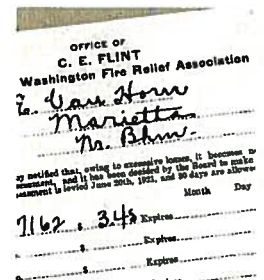 OFFICE OF
C. E. FLINT
Washington Fire Relief Association
E. Van Horn
Marietta
No. Bhm.
y notified that, owing to excessive losses, it becomes n
essment, and it has been decided by the Board to make
essment is levied June 20th, 1921, and 30 days are allowe
Month Day
7162 $ 3.45 Expires
$ Expires
$ Expires